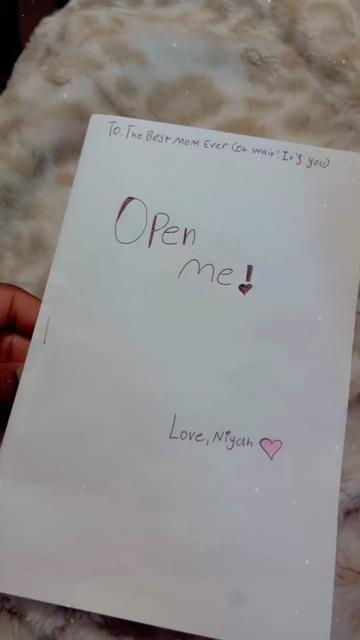 To. The Best Mom Ever (oh wait! It's you)
Open
me!
Love, Niyah